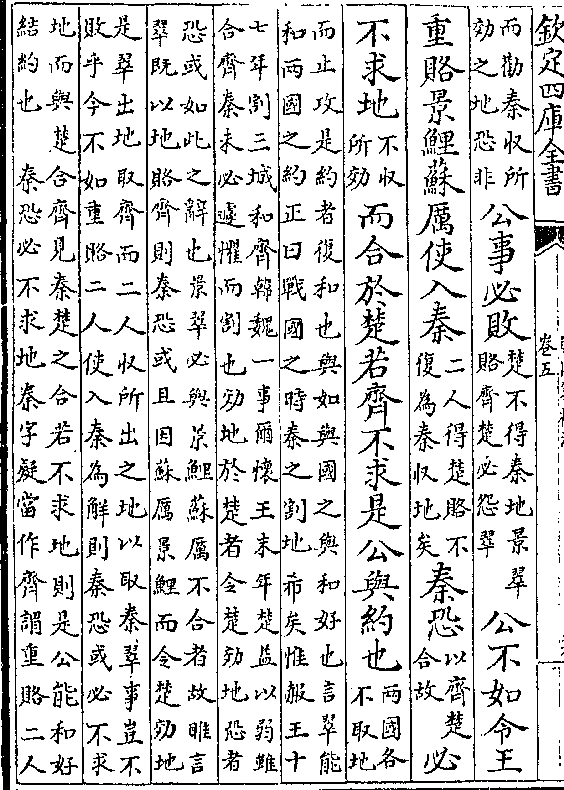 欽定四庫全書
卷五
而勸秦収所
効之地恐非
公事必敗
楚不得秦地景翠
賂齊楚必怨翠
公不如令王
重賂景鯉蘇厲使入秦
二人得楚賂不
復為秦収地矣
秦恐
以齊楚
合故
必
不求地
不収
所効
而合於楚若齊不求是公與約也
兩國各
不取地
而止攻是約者復和也與如與國之與和好也言翠能
和兩國之約正曰戰國之時秦之割地希矣惟赧王十
七年割三城和齊韓魏一事爾懷王末年楚益以弱雖
合齊秦未必遽懼而割也効地於楚者令楚効地恐者
恐或如此之辭也景翠必與景鯉蘇厲不合者故唯言
翠既以地賂齊則秦恐或且因蘇厲景鯉而令楚効地
是翠出地取齊而二人収所出之地以取秦翠事豈不
敗乎今不如重賂二人使入秦為解則秦恐或必不求
地而與楚合齊見秦楚之合若不求地則是公能和好
結約也 秦恐必不求地秦字疑當作齊謂重賂二人